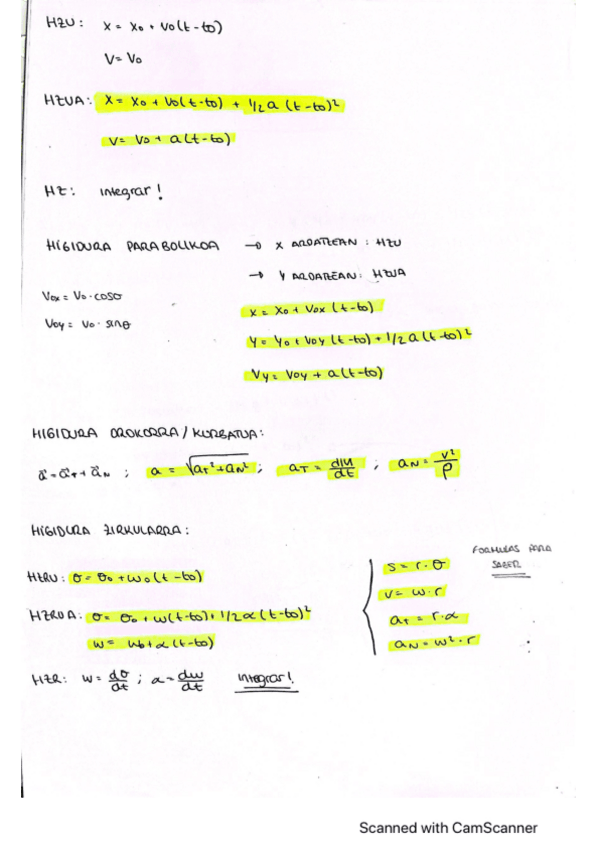 HZU: x = x₀ + v₀(t-t₀)
v = v₀
HZUA: x = x₀ + v₀(t-t₀) + 1/2 a (t-t₀)²
v = v₀ + a(t-t₀)
HZ: integrar!
HIGIDURA PARABOLIKOA → X ARDATZEAN: HZU
→ Y ARDATZEAN: HZUA
V₀x = V₀·cosθ
V₀y = V₀·sinθ
x = x₀ + V₀x (t-t₀)
y = y₀ + V₀y (t-t₀) + 1/2 a (t-t₀)²
Vy = V₀y + a(t-t₀)
HIGIDURA OROKORRA / KURBATUA:
a⃗ = a⃗T + a⃗N ; a = √(aT² + aN²) ; aT = d|v|/dt ; aN = v²/ρ
HIGIDURA ZIRKULARRA:
FORMULAS PARA
SABER
HZRU: θ = θ₀ + ω₀(t-t₀)
HZRUA: θ = θ₀ + ω(t-t₀) + 1/2 α(t-t₀)²
ω = ω₀ + α(t-t₀)
s = r·θ
v = ω·r
aT = r·α
aN = ω²·r
HZR: ω = dθ/dt ; α = dω/dt integrar!
Scanned with CamScanner